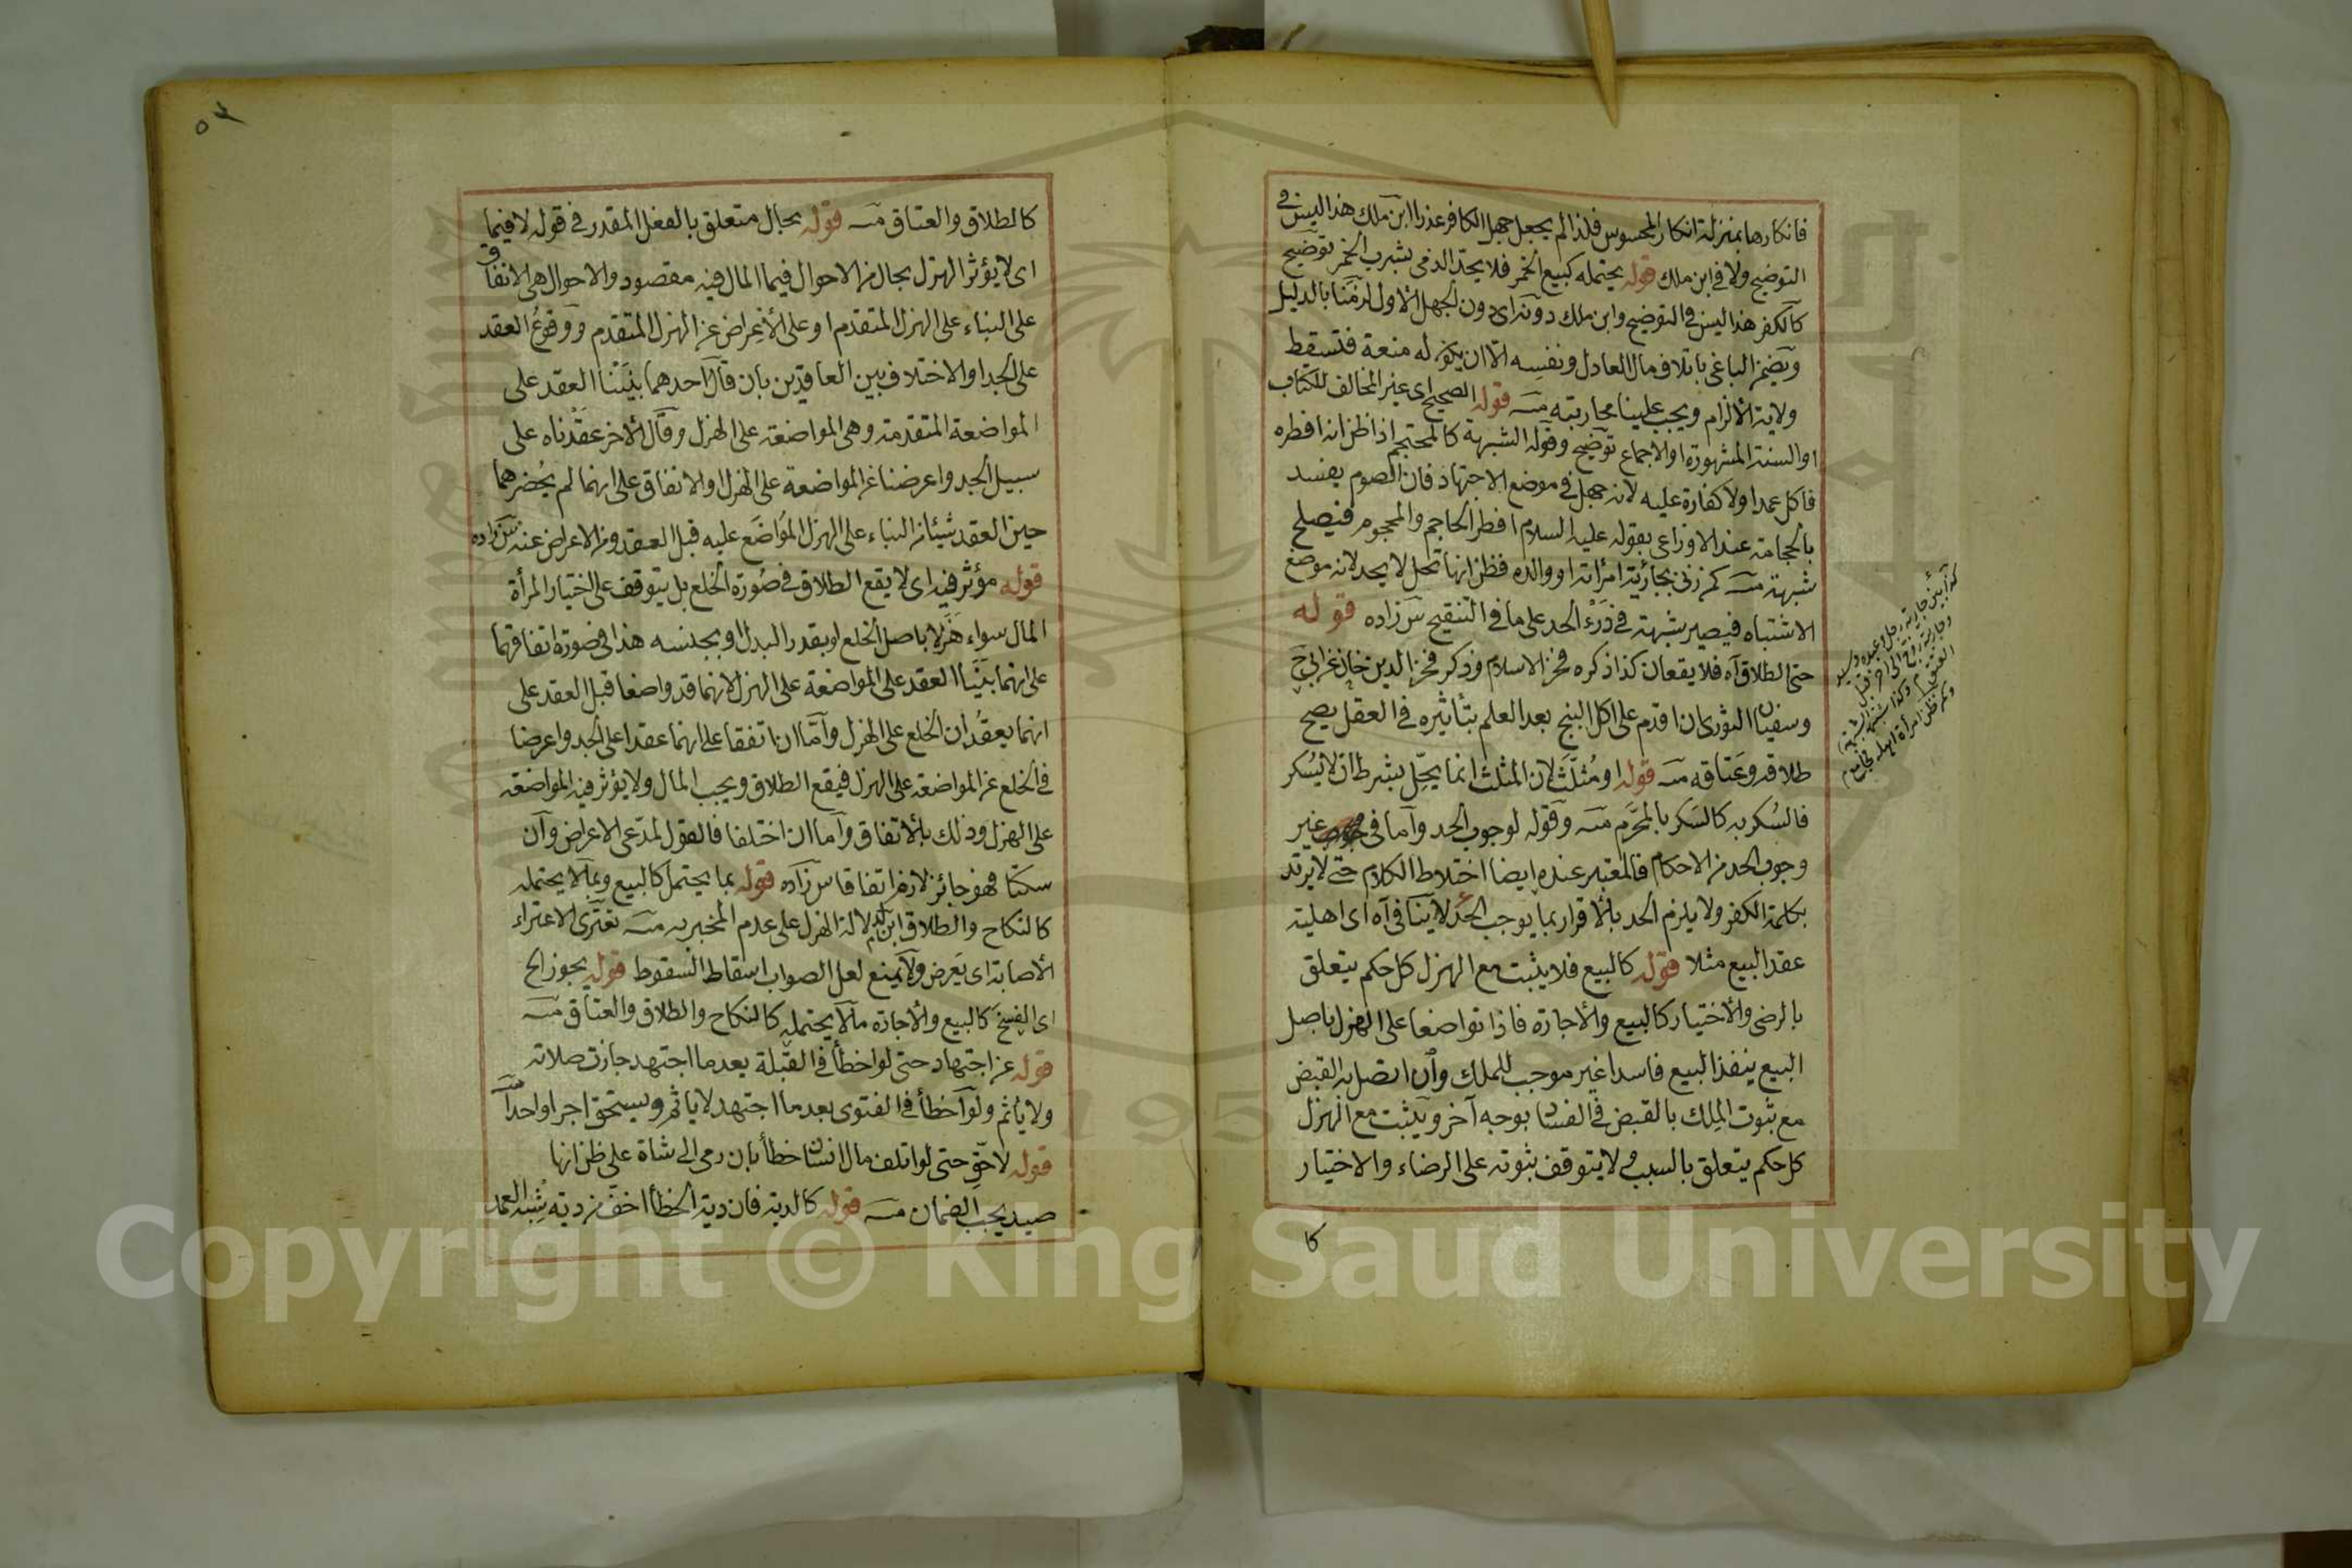 فانكارها بمنزلة انكار المحسوس فلذا لم يجعل جهل الكافر عذرا ابن ملك هذا ليس في
التوضيح ولا في ابن ملك قوله يحتمله كبيع الخمر فلا يحدّ الذمى بشرب الخمر توضيح
كالكفر هذا ليس في التوضيح وابن ملك دونه اى دون الجهل الاول لزمنا بالدليل
ويضمن الباغى باتلاف مال العادل ونفسه الا ان يكون له منعة فتسقط
ولاية الالزام ويجب علينا محاربته منه قوله الصحيح اى غير المخالف للكتاب
او السنة المشهورة او الاجماع توضيح وقوله الشبهة كالمحتجم اذا ظن انه افطره
فاكل عمدا ولا كفارة عليه لانه جهل في موضع الاجتهاد فان الصوم يفسد
بالحجامة عند الاوزاعى بقوله عليه السلام افطر الحاجم والمحجوم فيصلح
شبهة منه كمن زنى بجارية امرأته او والده فظن انها تحل لا يحد لانه موضع
الاشتباه فيصير شبهة في درء الحد على ما في التنقيح س زاده قوله
حتى الطلاق آه فلا يقعان كذا ذكره فخر الاسلام وذكر فخر الدين خان عن ابى ح
وسفيان الثورى ان اقدم على اكل البنج بعد العلم بتأثيره في العقل يصح
طلاقه وعتاقه منه قوله او مُثلّث لان المثلث انما يحلّ بشرط ان لا يُسكر
فالسُكر به كالسَكر بالمحرّم منه وقوله لوجوب الحد واما في غير
وجوب الحد من الاحكام فالمعتبر عنده ايضا اختلاط الكلام حتى لا يرتد
بكلمة الكفر ولا يلزم الحد بالاقرار بما يوجب الحد لا ينافى آه اى اهلية
عقد البيع مثلا قوله كالبيع فلا يثبت مع الهزل كل حكم يتعلق
بالرضى والاختيار كالبيع والاجارة فاذا تواضعا على الهزل باصل
البيع ينفذ البيع فاسدا غير موجب للملك وان اتصل به القبض
مع ثبوت المِلك بالقبض في الفساد بوجه آخر ويثبت مع الهزل
كل حكم يتعلق بالسبب لا يتوقف ثبوته على الرضاء والاختيار
كا
٥٢
كالطلاق والعتاق منه قوله بحال متعلق بالفعل المقدر في قوله لا فيما
اى لا يؤثر الهزل بحال من الاحوال فيما المال فيه مقصود والاحوال هى الاتفاق
على البناء على الهزل المتقدم او على الاعراض عن الهزل المتقدم ووقوع العقد
على الجد او الاختلاف بين العاقدين بان قال احدهما بنينا العقد على
المواضعة المتقدمة وهى المواضعة على الهزل وقال الاخر عقدناه على
سبيل الجد واعرضنا عن المواضعة على الهزل او الاتفاق على انهما لم يُحضرهما
حين العقد شيئ من البناء على الهزل المُواضَع عليه قبل العقد ومن الاعراض عنه س زاده
قوله مؤثر فيه اى لا يقع الطلاق في صُورة الخلع بل يتوقف على اختيار المرأة
المال سواء هَزَلا باصل الخلع او بقدر البدل او بجنسه هذا في صورة اتفاقهما
على انهما بَنَيَا العقد على المواضعة على الهزل لانهما قد واضعا قبل العقد على
انهما يعقدان الخلع على الهزل واما ان اتفقا على انهما عقدا على الجد واعرضا
في الخلع عن المواضعة على الهزل فيقع الطلاق ويجب المال ولا يؤثر فيه المواضعة
على الهزل وذلك بالاتفاق واما ان اختلفا فالقول لمدّعى الاعراض وان
سكتا فهو جائز لازم اتفاقا س زاده قوله بما يحتمل كالبيع وبما لا يحتمله
كالنكاح والطلاق لدلالة الهزل على عدم المخبر به منه تعترى الاعتراء
الاصابة اى يَعرض ولا يمنع لعل الصواب اسقاط السقوط قوله يجوز الخ
اى الفسخ كالبيع والاجارة ما لا يحتمله كالنكاح والطلاق والعتاق منه
قوله عن اجتهاد حتى لو اخطأ في القبلة بعد ما اجتهد جازت صلاته
ولا يأثم ولو اخطأ في الفتوى بعد ما اجتهد لا يأثم ويستحق اجرا واحدا
قوله لا حقّ حتى لو اتلف مال انسان خطأ بان رمى الى شاة على ظن انها
صيد يجب الضمان منه قوله كالدية فان دية الخطأ اخف من دية شبه العمد
Copyright © King Saud University